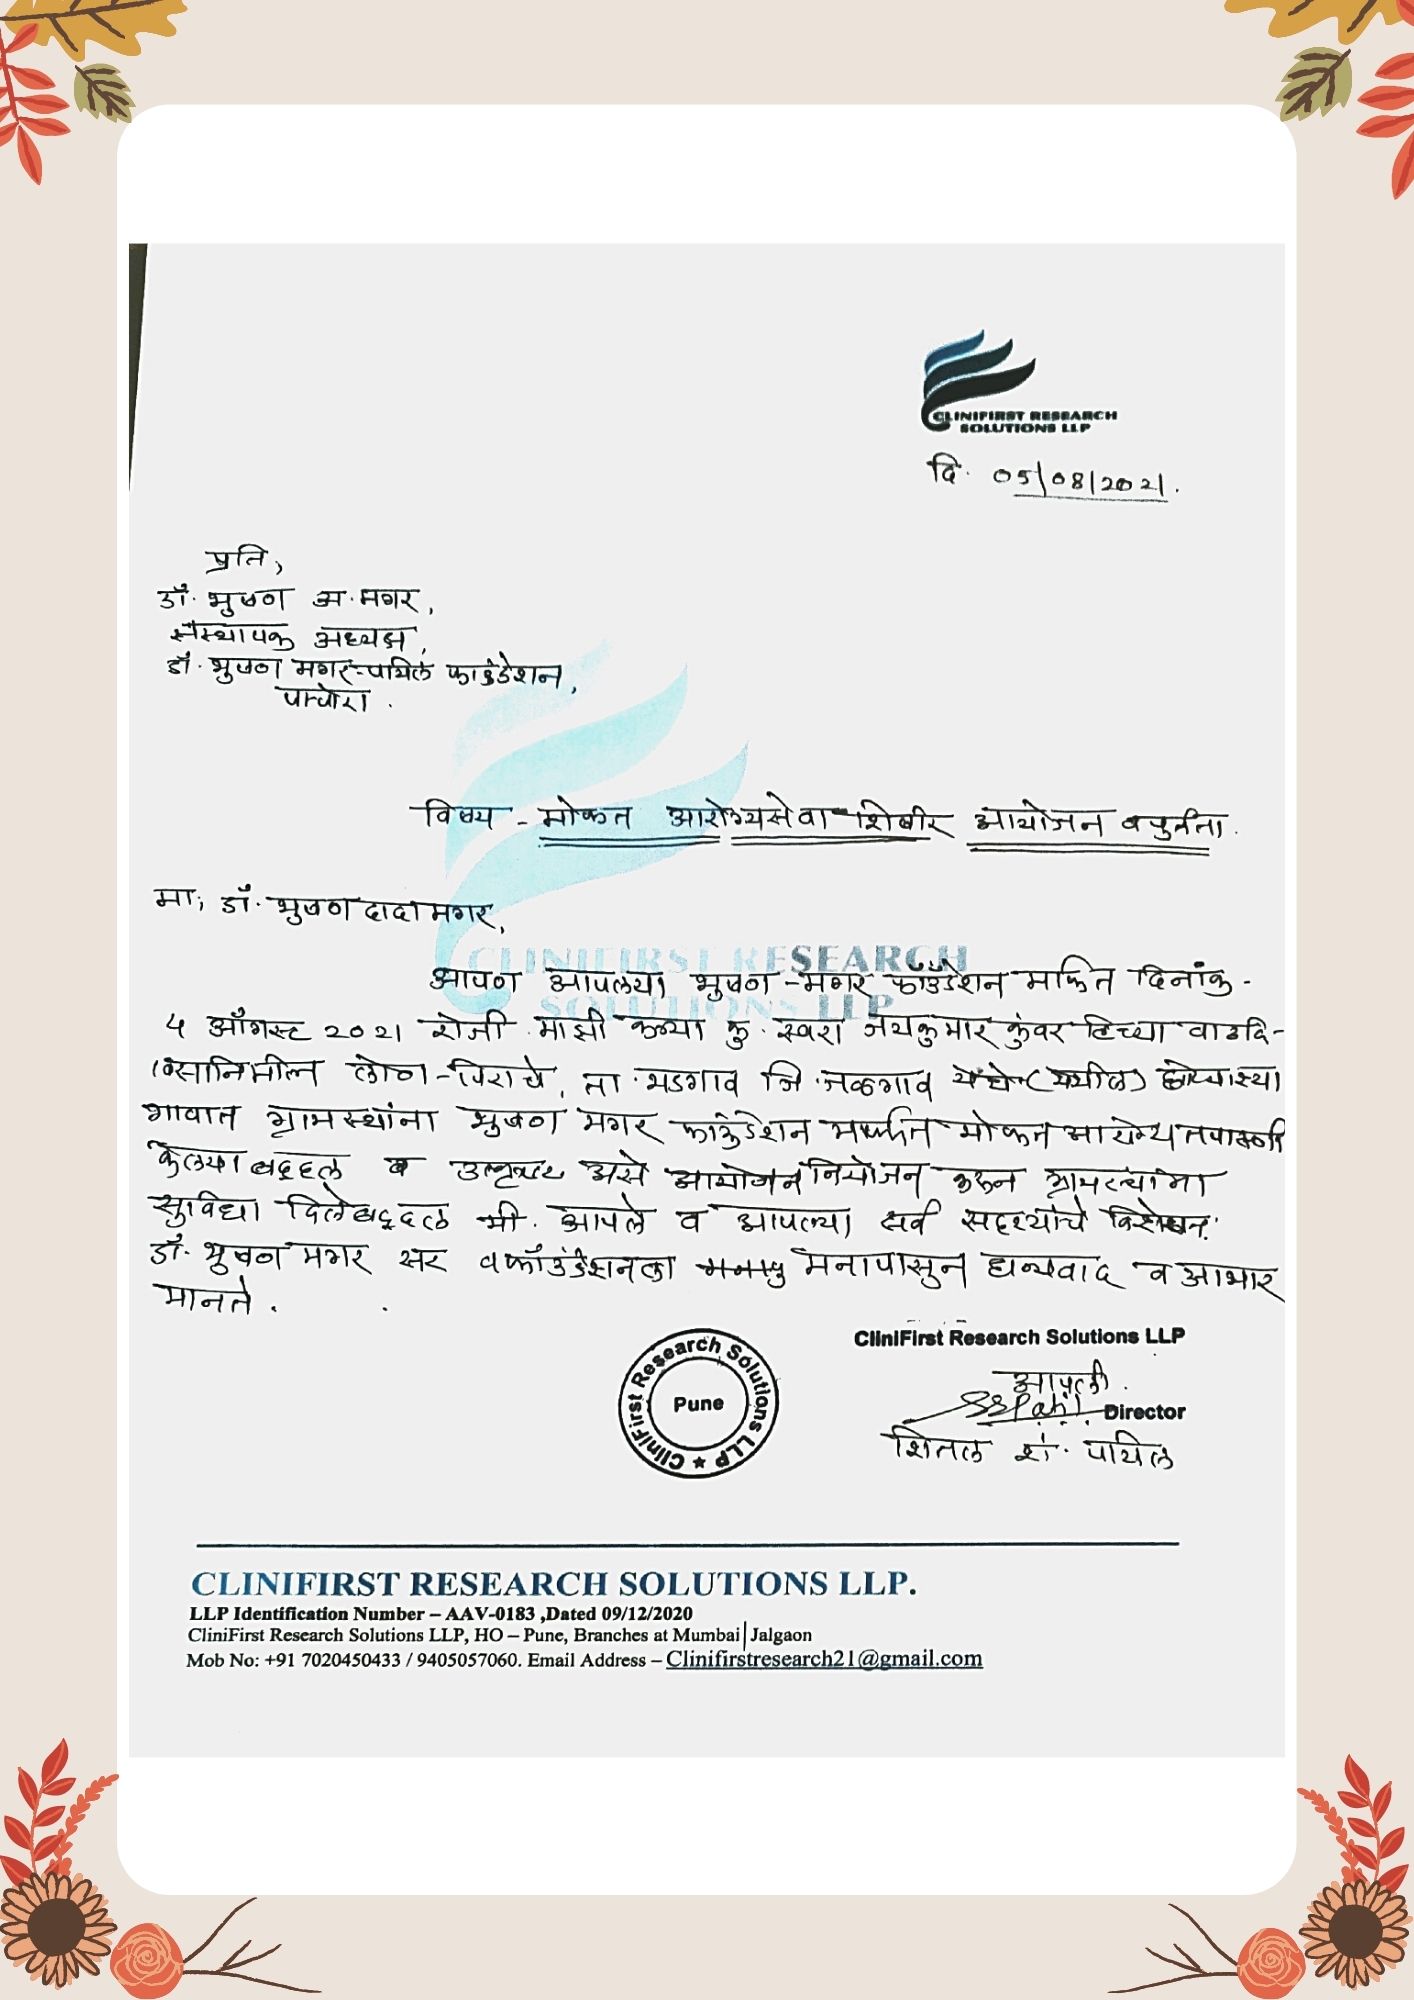 CLINIFIRST RESEARCH
SOLUTIONS LLP
दि. 05/08/2021.
प्रति,
डॉ. भुषण अ. मगर,
संस्थापक अध्यक्ष,
डॉ. भुषण मगर-पाटिल फाउंडेशन,
पाचोरा.
विषय - मोफत आरोग्यसेवा शिबीर आयोजन व पुर्तता.
मा; डॉ. भुषण दादा मगर,
CLINIFIRST RESEARCH
SOLUTIONS LLP
आपण आपल्या भुषण-मगर फाउंडेशन मार्फत दिनांक-
५ ऑगस्ट 2021 रोजी माझी कन्या कु. स्वरा जयकुमार कुंवर हिच्या वाढदि-
वसानिमीत्त लोण-पिराचे, ता. भडगाव जि. जळगाव येथे (येथील) छोट्याश्या
गावात ग्रामस्थांना भुषण मगर फाउंडेशन मार्फत मोफत आरोग्य तपासणी
केल्याबद्दल व उत्कृष्ट असे आयोजन नियोजन करून ग्रामस्थांना
सुविधा दिलेबद्दल मी आपले व आपल्या सर्व सदस्यांचे विशेषत:
डॉ. भुषण मगर सर व फॉउंडेशनला मनापासुन धन्यवाद व आभार
मानते.
CliniFirst Research Solutions LLP
आपली
SSPatil Director
शितल शं. पाटिल
CliniFirst Research Solutions LLP ★
Pune
CLINIFIRST RESEARCH SOLUTIONS LLP.
LLP Identification Number – AAV-0183 ,Dated 09/12/2020
CliniFirst Research Solutions LLP, HO – Pune, Branches at Mumbai|Jalgaon
Mob No: +91 7020450433 / 9405057060. Email Address – Clinifirstresearch21@gmail.com